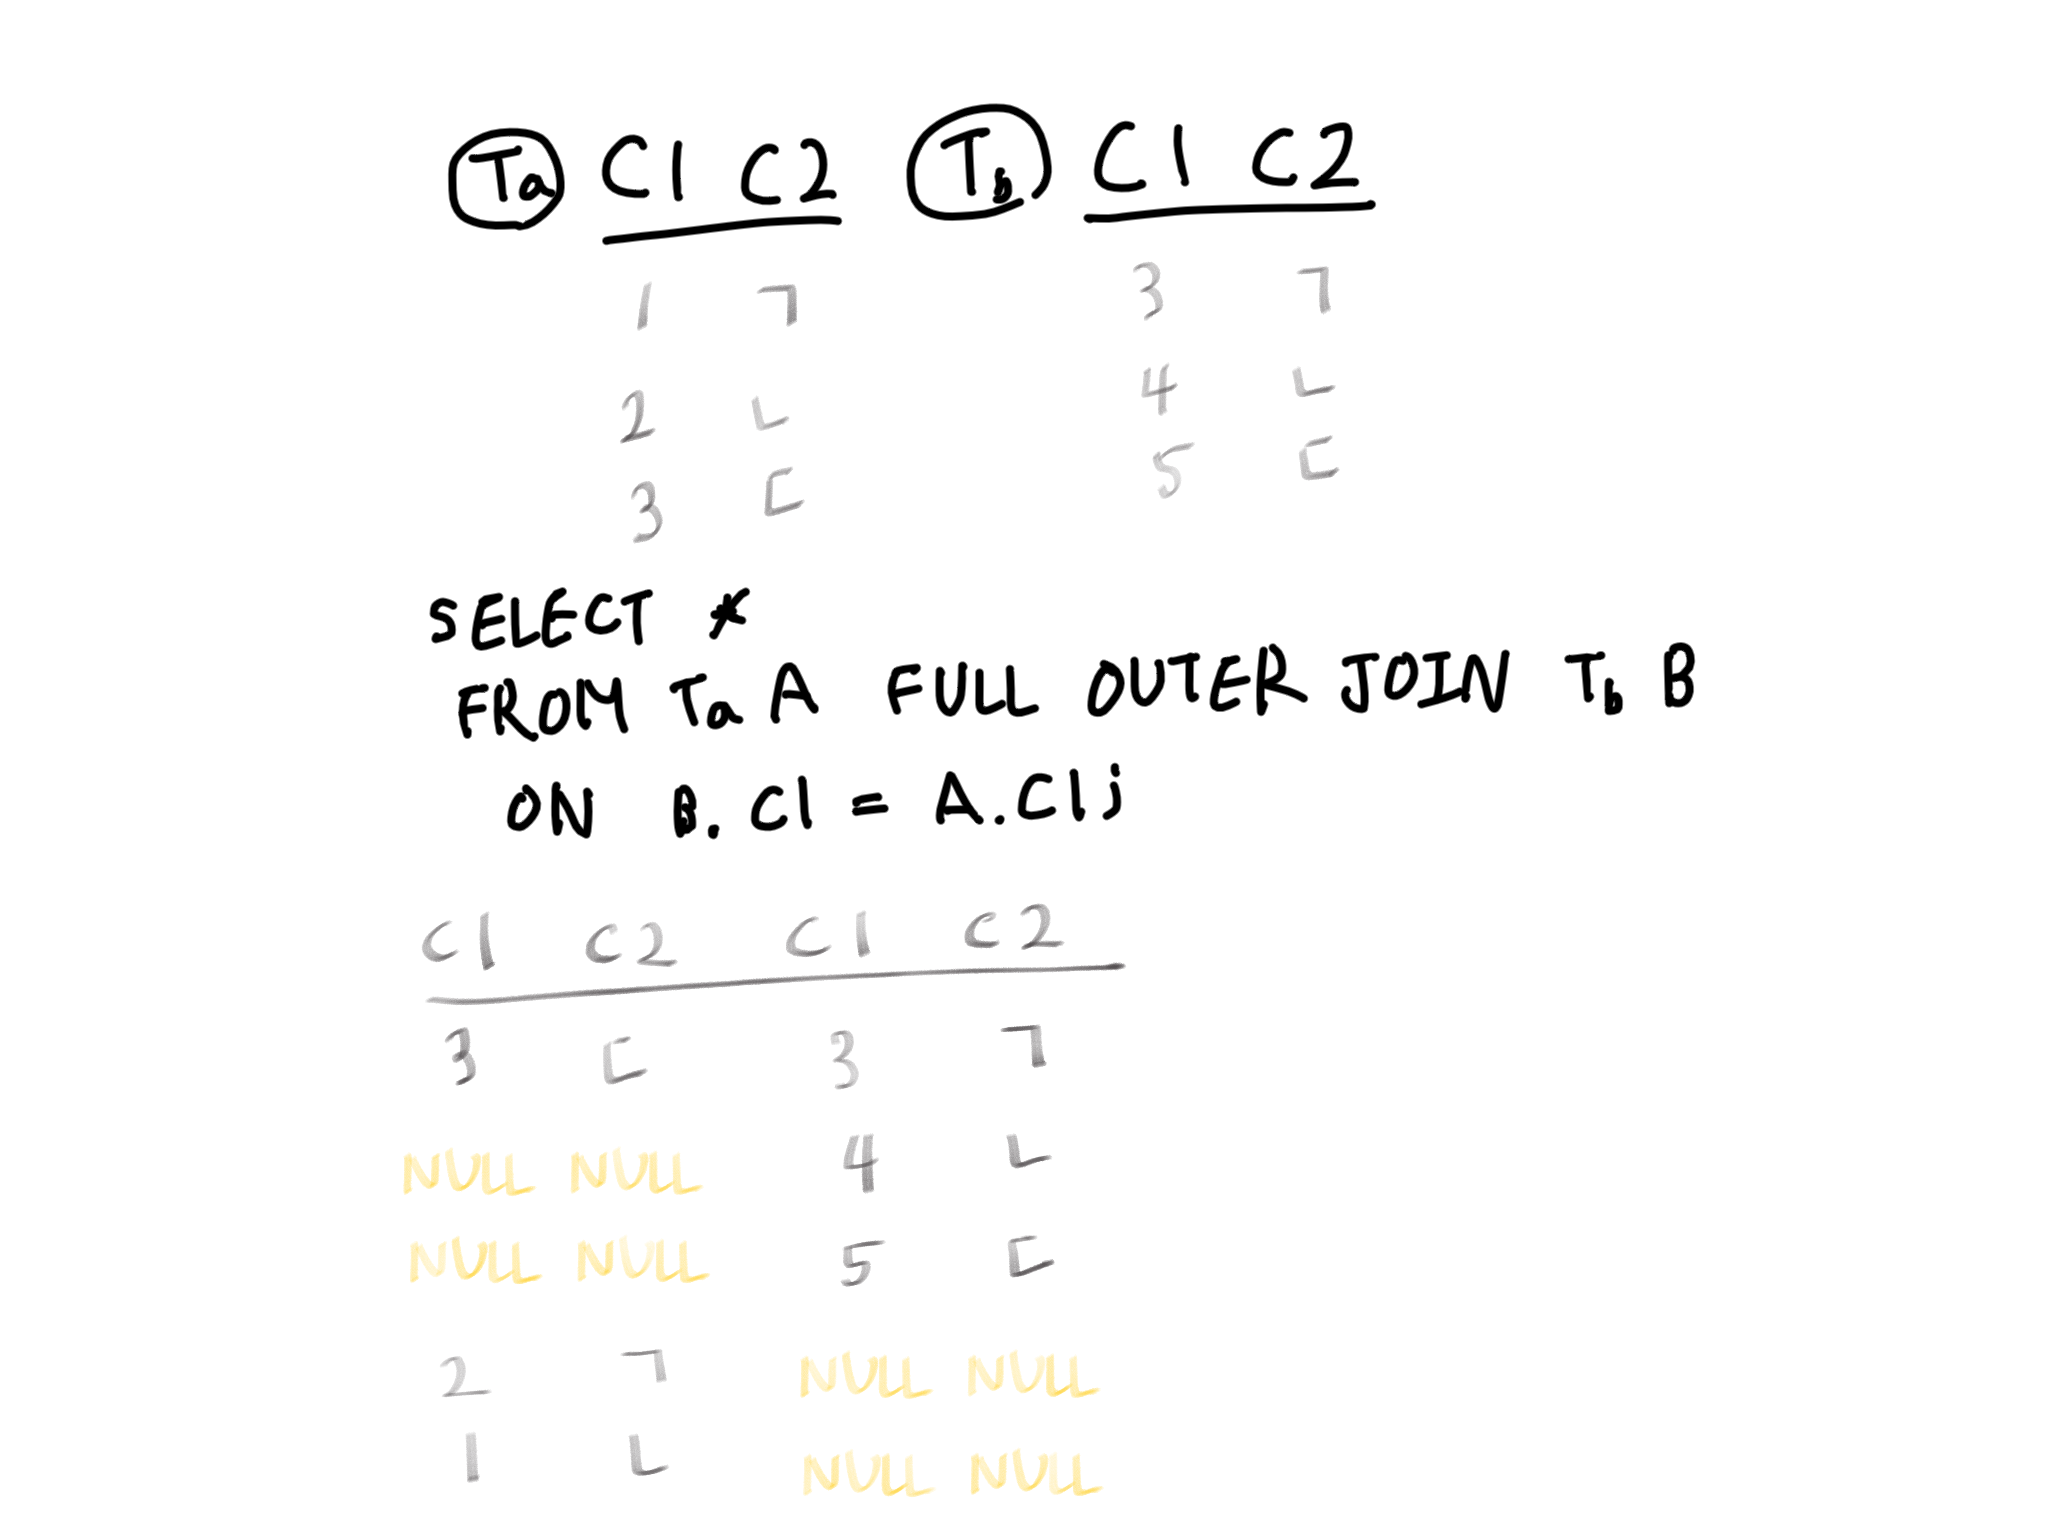 Ta C1 C2 Tb C1 C2
1 ㄱ 3 ㄱ
2 ㄴ 4 ㄴ
3 ㄷ 5 ㄷ
SELECT *
FROM Ta A FULL OUTER JOIN Tb B
ON B.C1 = A.C1;
C1 C2 C1 C2
3 ㄷ 3 ㄱ
NULL NULL 4 ㄴ
NULL NULL 5 ㄷ
2 ㄱ NULL NULL
1 ㄴ NULL NULL